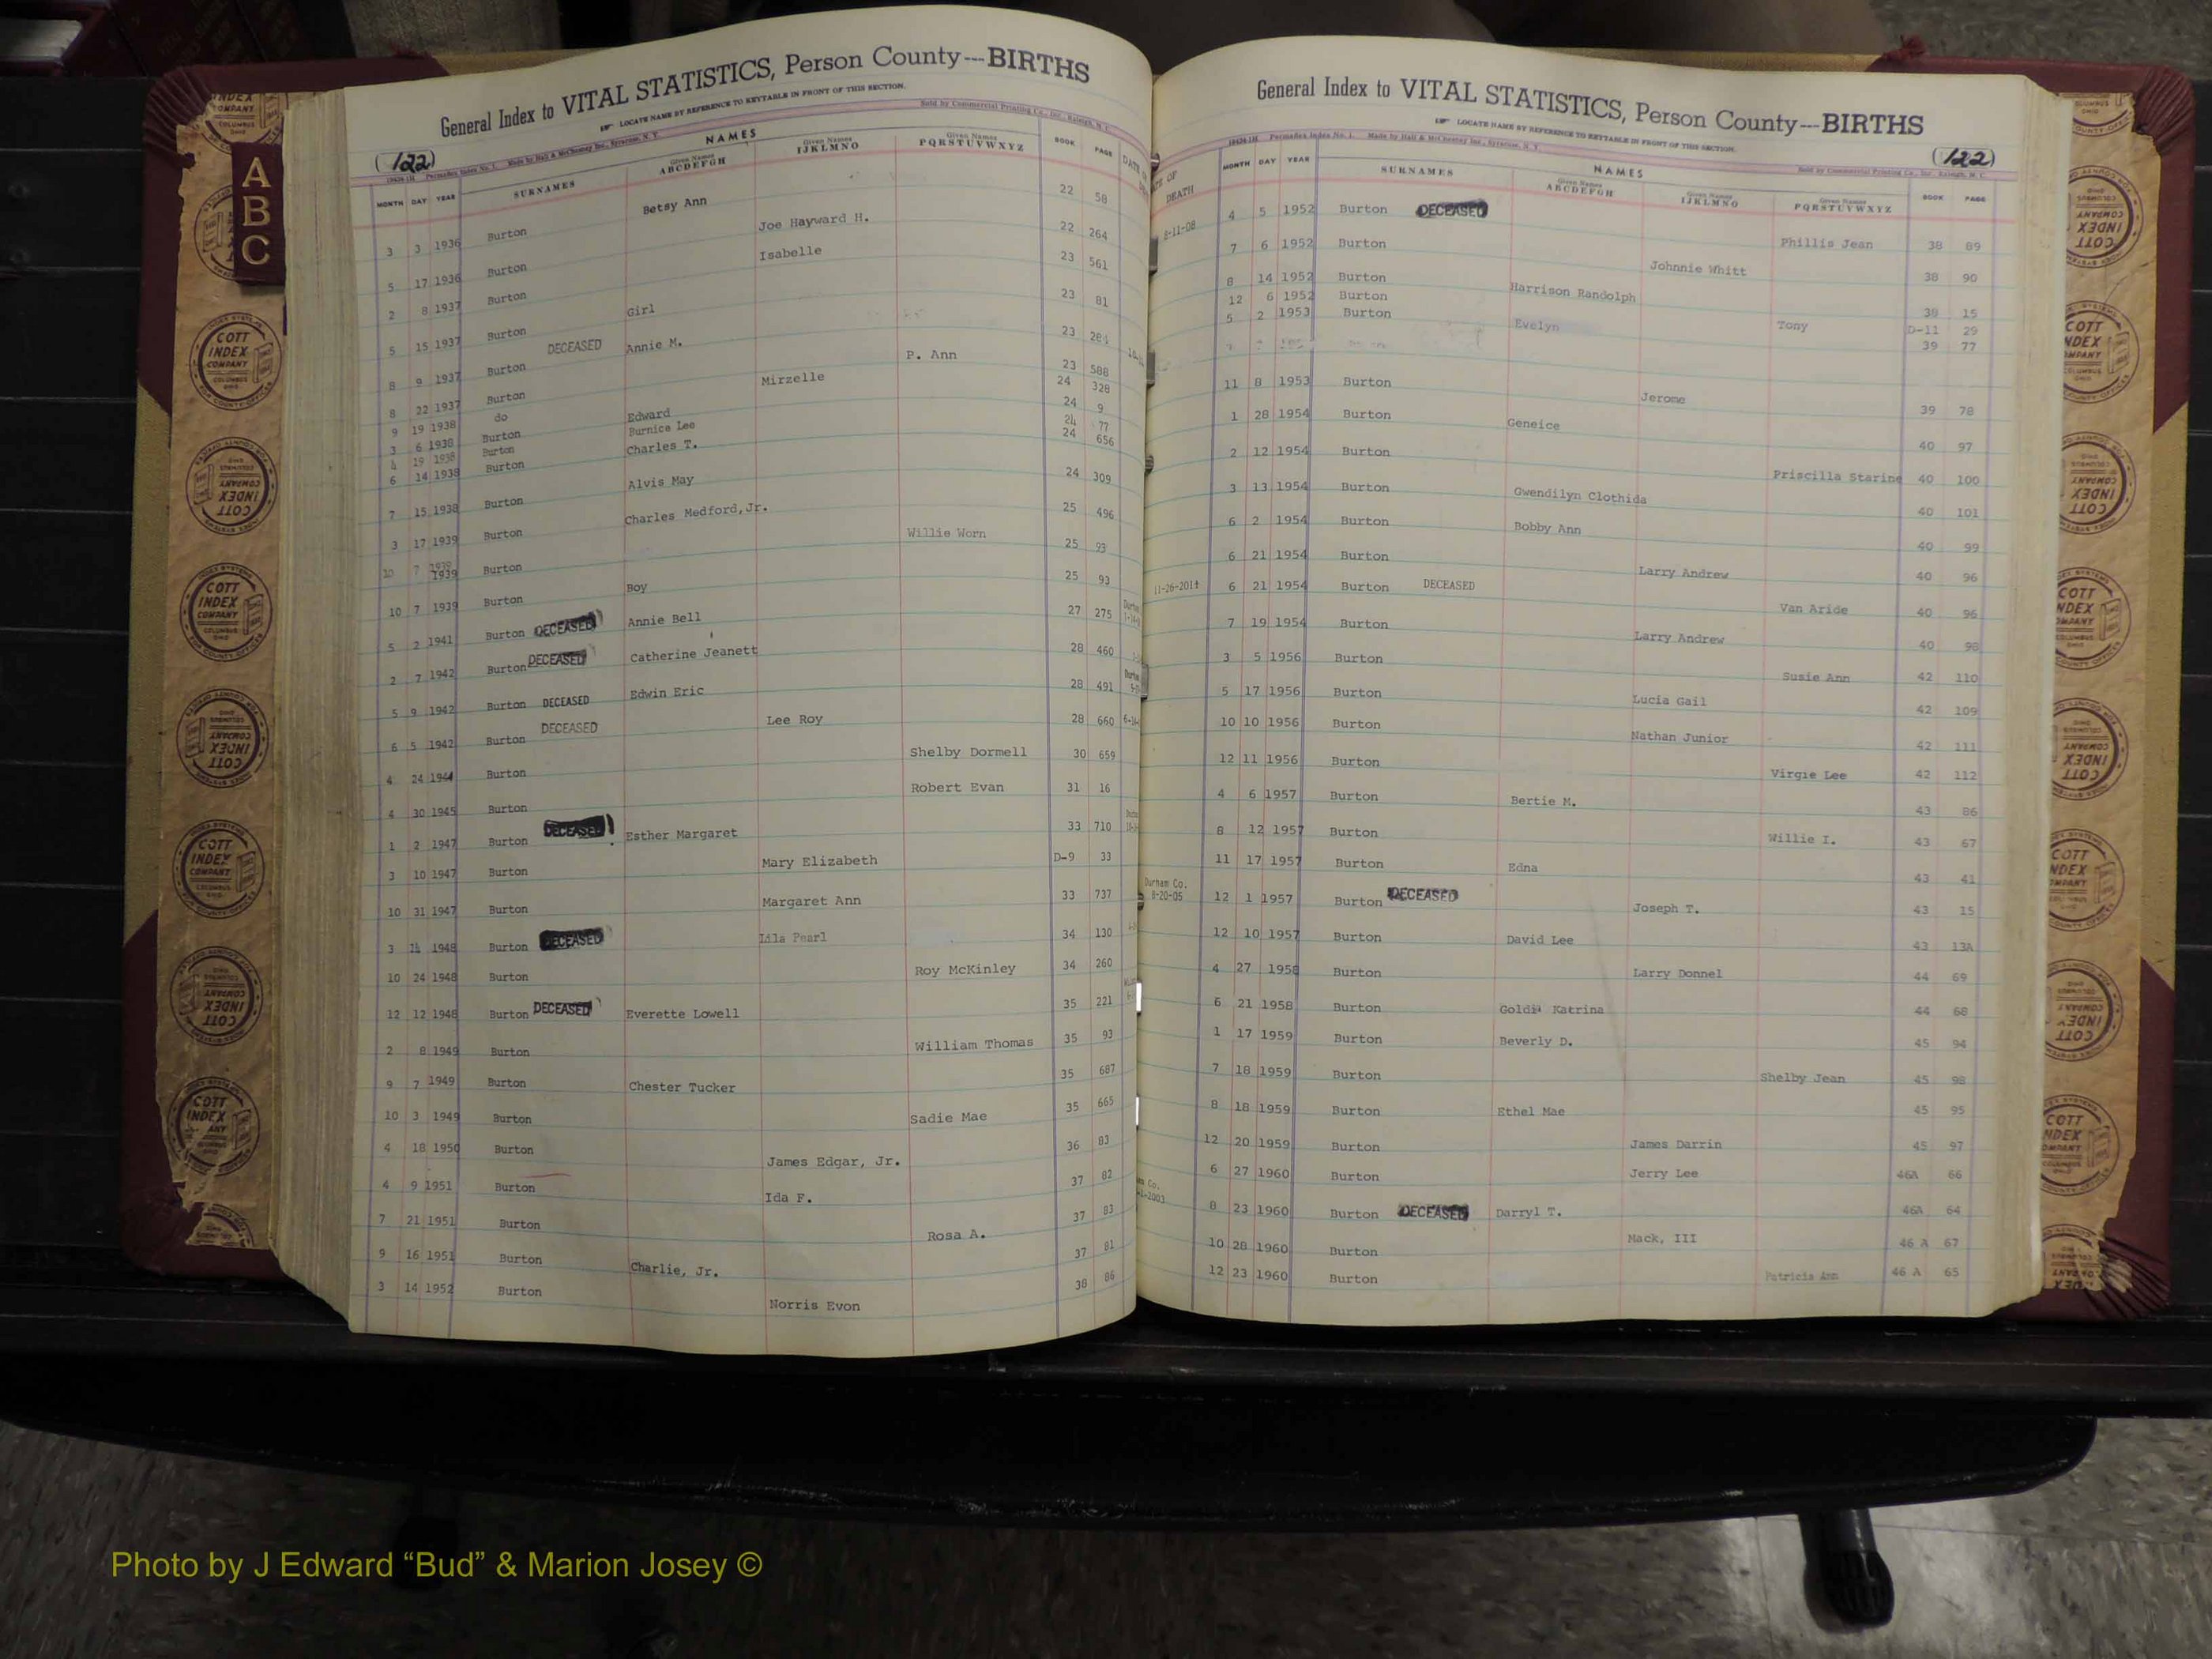 General Index to VITAL STATISTICS, Person County---BIRTHS
LOCATE NAME BY REFERENCE TO KEYTABLE IN FRONT OF THIS SECTION.
(122)
Made by Hall & McChesney Inc., Syracuse, N. Y. Sold by Commercial Printing Co., Inc., Raleigh, N. C.
NAMES
MONTH DAY YEAR SURNAMES Given Names ABCDEFGH Given Names IJKLMNO Given Names PQRSTUVWXYZ BOOK PAGE
3 3 1936 Burton Betsy Ann 22 58
5 17 1936 Burton Joe Hayward H. 22 264
2 8 1937 Burton Isabelle 23 561
5 15 1937 Burton Girl 23 81
8 9 1937 Burton DECEASED Annie M. 23 284
8 22 1937 Burton P. Ann 23 588
9 19 1938 do Mirzelle 24 328
3 6 1938 Burton Edward 24 9
4 19 1938 Burton Burnice Lee 24 77
6 14 1938 Burton Charles T. 24 656
7 15 1938 Burton Alvis May 24 309
3 17 1939 Burton Charles Medford,Jr. 25 496
10 7 1939 Burton Willie Worn 25 93
10 7 1939 Burton Boy 25 93
5 2 1941 Burton DECEASED Annie Bell 27 275
2 7 1942 Burton DECEASED Catherine Jeanett 28 460
5 9 1942 Burton DECEASED Edwin Eric 28 491
6 5 1942 Burton DECEASED Lee Roy 28 660
4 24 1944 Burton Shelby Dormell 30 659
4 30 1945 Burton Robert Evan 31 16
1 2 1947 Burton DECEASED Esther Margaret 33 710
3 10 1947 Burton Mary Elizabeth D-9 33
10 31 1947 Burton Margaret Ann 33 737
3 14 1948 Burton DECEASED Lila Pearl 34 130
10 24 1948 Burton Roy McKinley 34 260
12 12 1948 Burton DECEASED Everette Lowell 35 221
2 8 1949 Burton William Thomas 35 93
9 7 1949 Burton Chester Tucker 35 687
10 3 1949 Burton Sadie Mae 35 665
4 18 1950 Burton James Edgar, Jr. 36 83
4 9 1951 Burton Ida F. 37 82
7 21 1951 Burton Rosa A. 37 83
9 16 1951 Burton Charlie, Jr. 37 81
3 14 1952 Burton Norris Evon 38 86
General Index to VITAL STATISTICS, Person County---BIRTHS
LOCATE NAME BY REFERENCE TO KEYTABLE IN FRONT OF THIS SECTION.
(122)
Permadex Index No. 1. Made by Hall & McChesney Inc., Syracuse, N. Y. Sold by Commercial Printing Co., Inc., Raleigh, N. C.
NAMES
DEATH MONTH DAY YEAR SURNAMES Given Names ABCDEFGH Given Names IJKLMNO Given Names PQRSTUVWXYZ BOOK PAGE
8-11-08 4 5 1952 Burton DECEASED Phillis Jean 38 89
7 6 1952 Burton Johnnie Whitt 38 90
8 14 1952 Burton Harrison Randolph 38 15
12 6 1952 Burton Tony D-11 29
5 2 1953 Burton Evelyn 39 77
11 8 1953 Burton Jerome 39 78
1 28 1954 Burton Geneice 40 97
2 12 1954 Burton Priscilla Starine 40 100
3 13 1954 Burton Gwendilyn Clothida 40 101
6 2 1954 Burton Bobby Ann 40 99
6 21 1954 Burton Larry Andrew 40 96
11-26-2014 6 21 1954 Burton DECEASED Van Aride 40 96
7 19 1954 Burton Larry Andrew 40 98
3 5 1956 Burton Susie Ann 42 110
5 17 1956 Burton Lucia Gail 42 109
10 10 1956 Burton Nathan Junior 42 111
12 11 1956 Burton Virgie Lee 42 112
4 6 1957 Burton Bertie M. 43 86
8 12 1957 Burton Willie I. 43 67
11 17 1957 Burton Edna 43 41
Durham Co. 8-20-05 12 1 1957 Burton DECEASED Joseph T. 43 15
12 10 1957 Burton David Lee 43 13A
4 27 1958 Burton Larry Donnel 44 69
6 21 1958 Burton Goldie Katrina 44 68
1 17 1959 Burton Beverly D. 45 94
7 18 1959 Burton Shelby Jean 45 98
8 18 1959 Burton Ethel Mae 45 95
12 20 1959 Burton James Darrin 45 97
6 27 1960 Burton Jerry Lee 46A 66
8 23 1960 Burton DECEASED Darryl T. 46A 64
10 28 1960 Burton Mack, III 46 A 67
12 23 1960 Burton Patricia Ann 46 A 65
A
B
C
COTT
INDEX
COMPANY
COLUMBUS
OHIO
Photo by J Edward “Bud” & Marion Josey ©